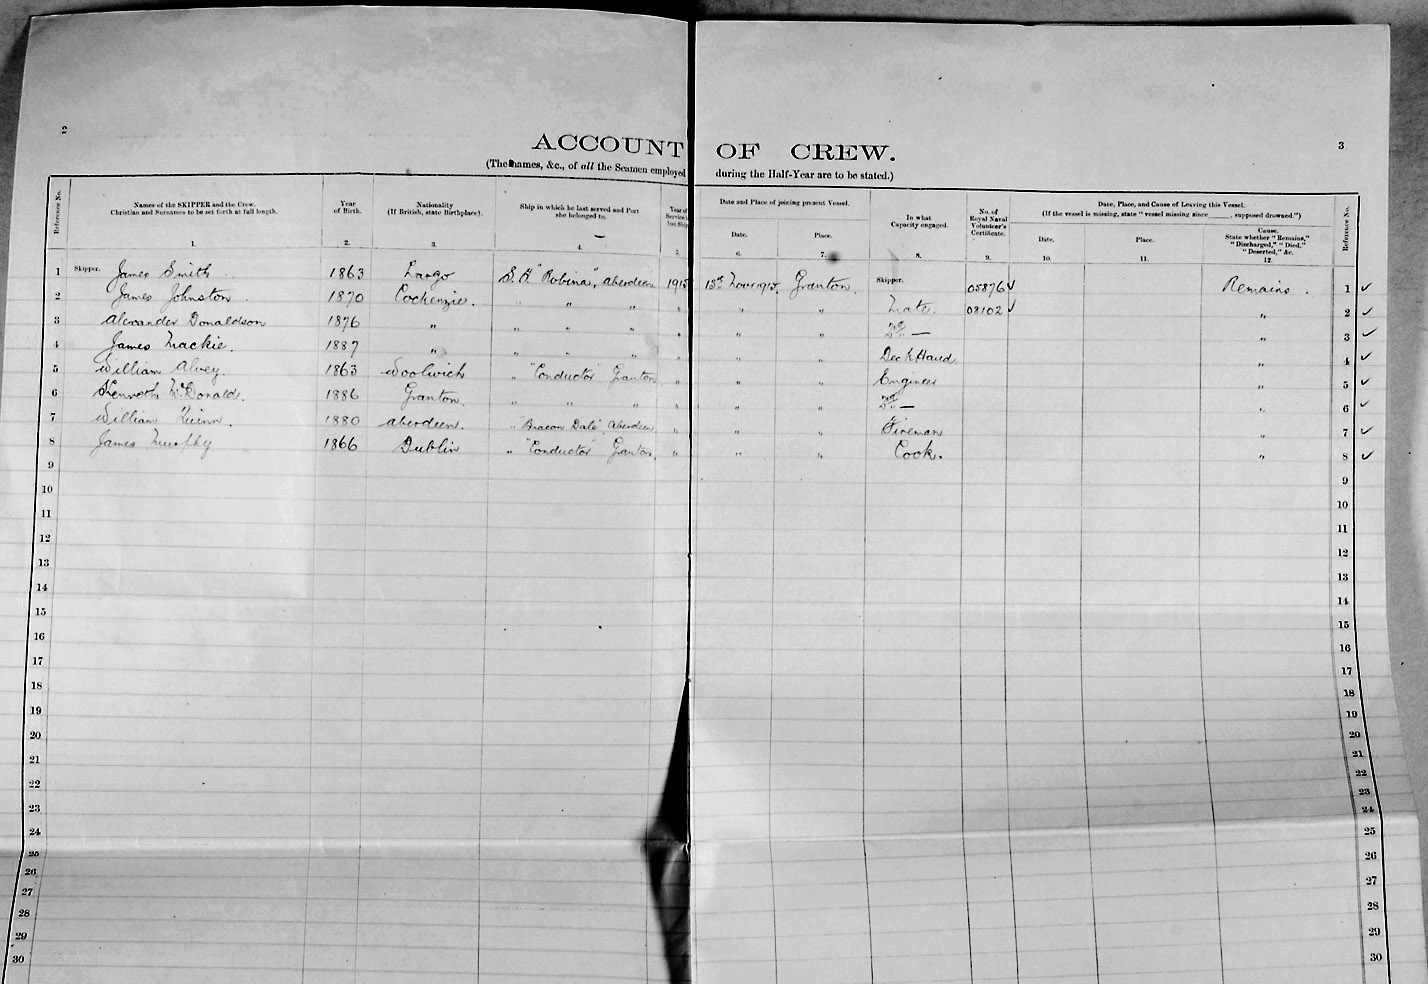 2
3
ACCOUNT OF CREW.
(The names, &c., of all the Seamen employed during the Half-Year are to be stated.)
Reference No. Names of the SKIPPER and the Crew. Christian and Surnames to be set forth at full length. Year of Birth. Nationality (If British, state Birthplace). Ship in which he last served and Port she belonged to. Year of Service in last Ship Date and Place of joining present Vessel. Date. Place. In what Capacity engaged. No. of Royal Naval Volunteer's Certificate. Date, Place, and Cause of Leaving this Vessel. (If the vessel is missing, state "vessel missing since ____, supposed drowned.") Date. Place. Cause. State whether "Remains," "Discharged," "Died," "Deserted," &c. Reference No.
1. 2. 3. 4. 5. 6. 7. 8. 9. 10. 11. 12.
1 Skipper. James Smith 1863 Largo S.T. "Robina", Aberdeen 1915 Granton. Skipper. 05876 ✓ Remains. 1 ✓
2 James Johnston 1870 Cockenzie. " " " " " Mate. 08102 ✓ " 2 ✓
3 Alexander Donaldson 1876 " " " " " " " 2nd — " 3 ✓
4 James Mackie. 1887 " " " " " " " Deck Hand " 4 ✓
5 William Alvey. 1863 Woolwich " "Conductor" Granton " " " Engineer " 5 ✓
6 Kenneth McDonald. 1886 Granton. " " " " " " 2nd — " 6 ✓
7 William Quinn. 1880 Aberdeen. " Aberdeen " " " Fireman " 7 ✓
8 James Murphy 1866 Dublin " "Conductor" Granton. " " " Cook. " 8 ✓
9 9
10 10
11 11
12 12
13 13
14 14
15 15
16 16
17 17
18 18
19 19
20 20
21 21
22 22
23 23
24 24
25 25
26 26
27 27
28 28
29 29
30 30